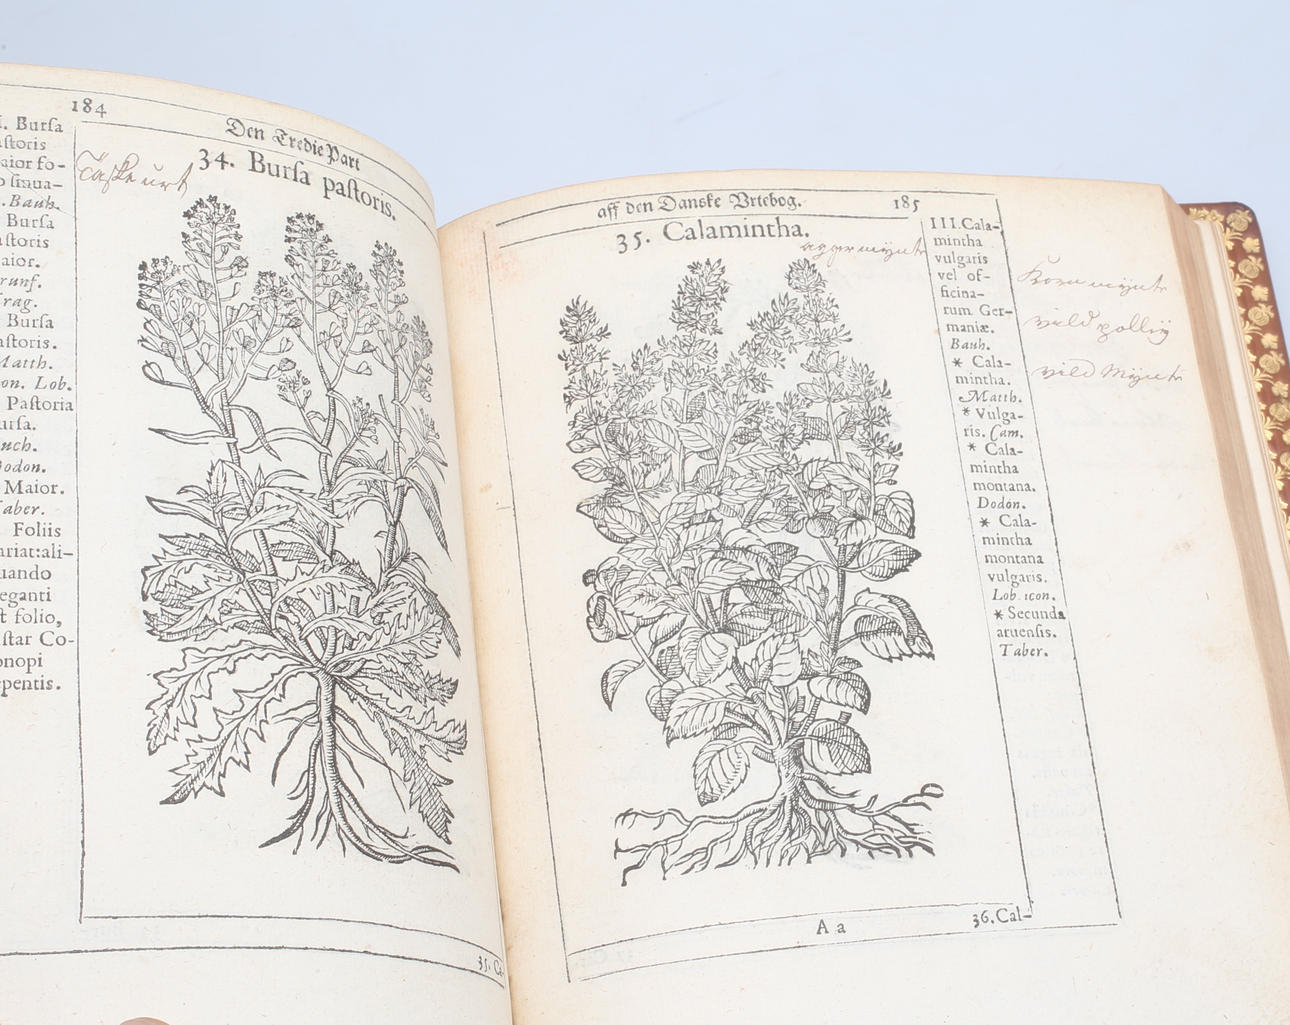 184
Den Tredie Part
34. Burſa paſtoris.
Taſke urt
Burſa
ſtoris
aior fo-
ſinua-
Bauh.
Burſa
ſtoris
aior.
runf.
rag.
Burſa
aſtoris.
Matth.
on. Lob.
Paſtoria
urſa.
uch.
odon.
Maior.
Taber.
Foliis
ariat:ali-
uando
eganti
t folio,
ſtar Co-
onopi
pentis.
35. Ca-
aff den Danske Vrtebog.
185
35. Calamintha.
agger mÿnte
III. Cala-
mintha
vulgaris
vel of-
ficina-
rum Ger-
maniæ.
Bauh.
* Cala-
mintha.
Matth.
* Vulga-
ris. Cam.
* Cala-
mintha
montana.
Dodon.
* Cala-
mintha
montana
vulgaris.
Lob. icon.
* Secunda
aruenſis.
Taber.
Korn mÿnte
vild polleÿ
vild Mÿnte
A a
36. Cal-